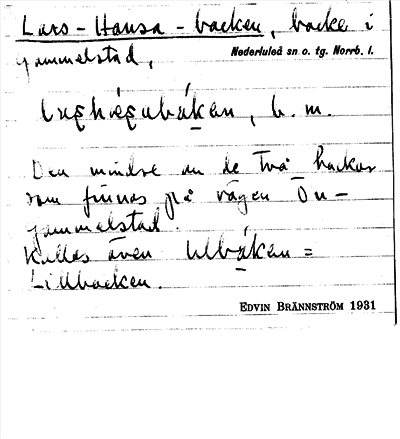 Lars-Hansa-backen, backe i
Gammelstad,
Nederluleå sn o. tg. Norrb. l.
b. m.
Den mindre av de två backar
som finnas på vägen Ön-
Gammelstad.
Kallas även lilbåkan =
Lillbacken.
EDVIN BRÄNNSTRÖM 1931